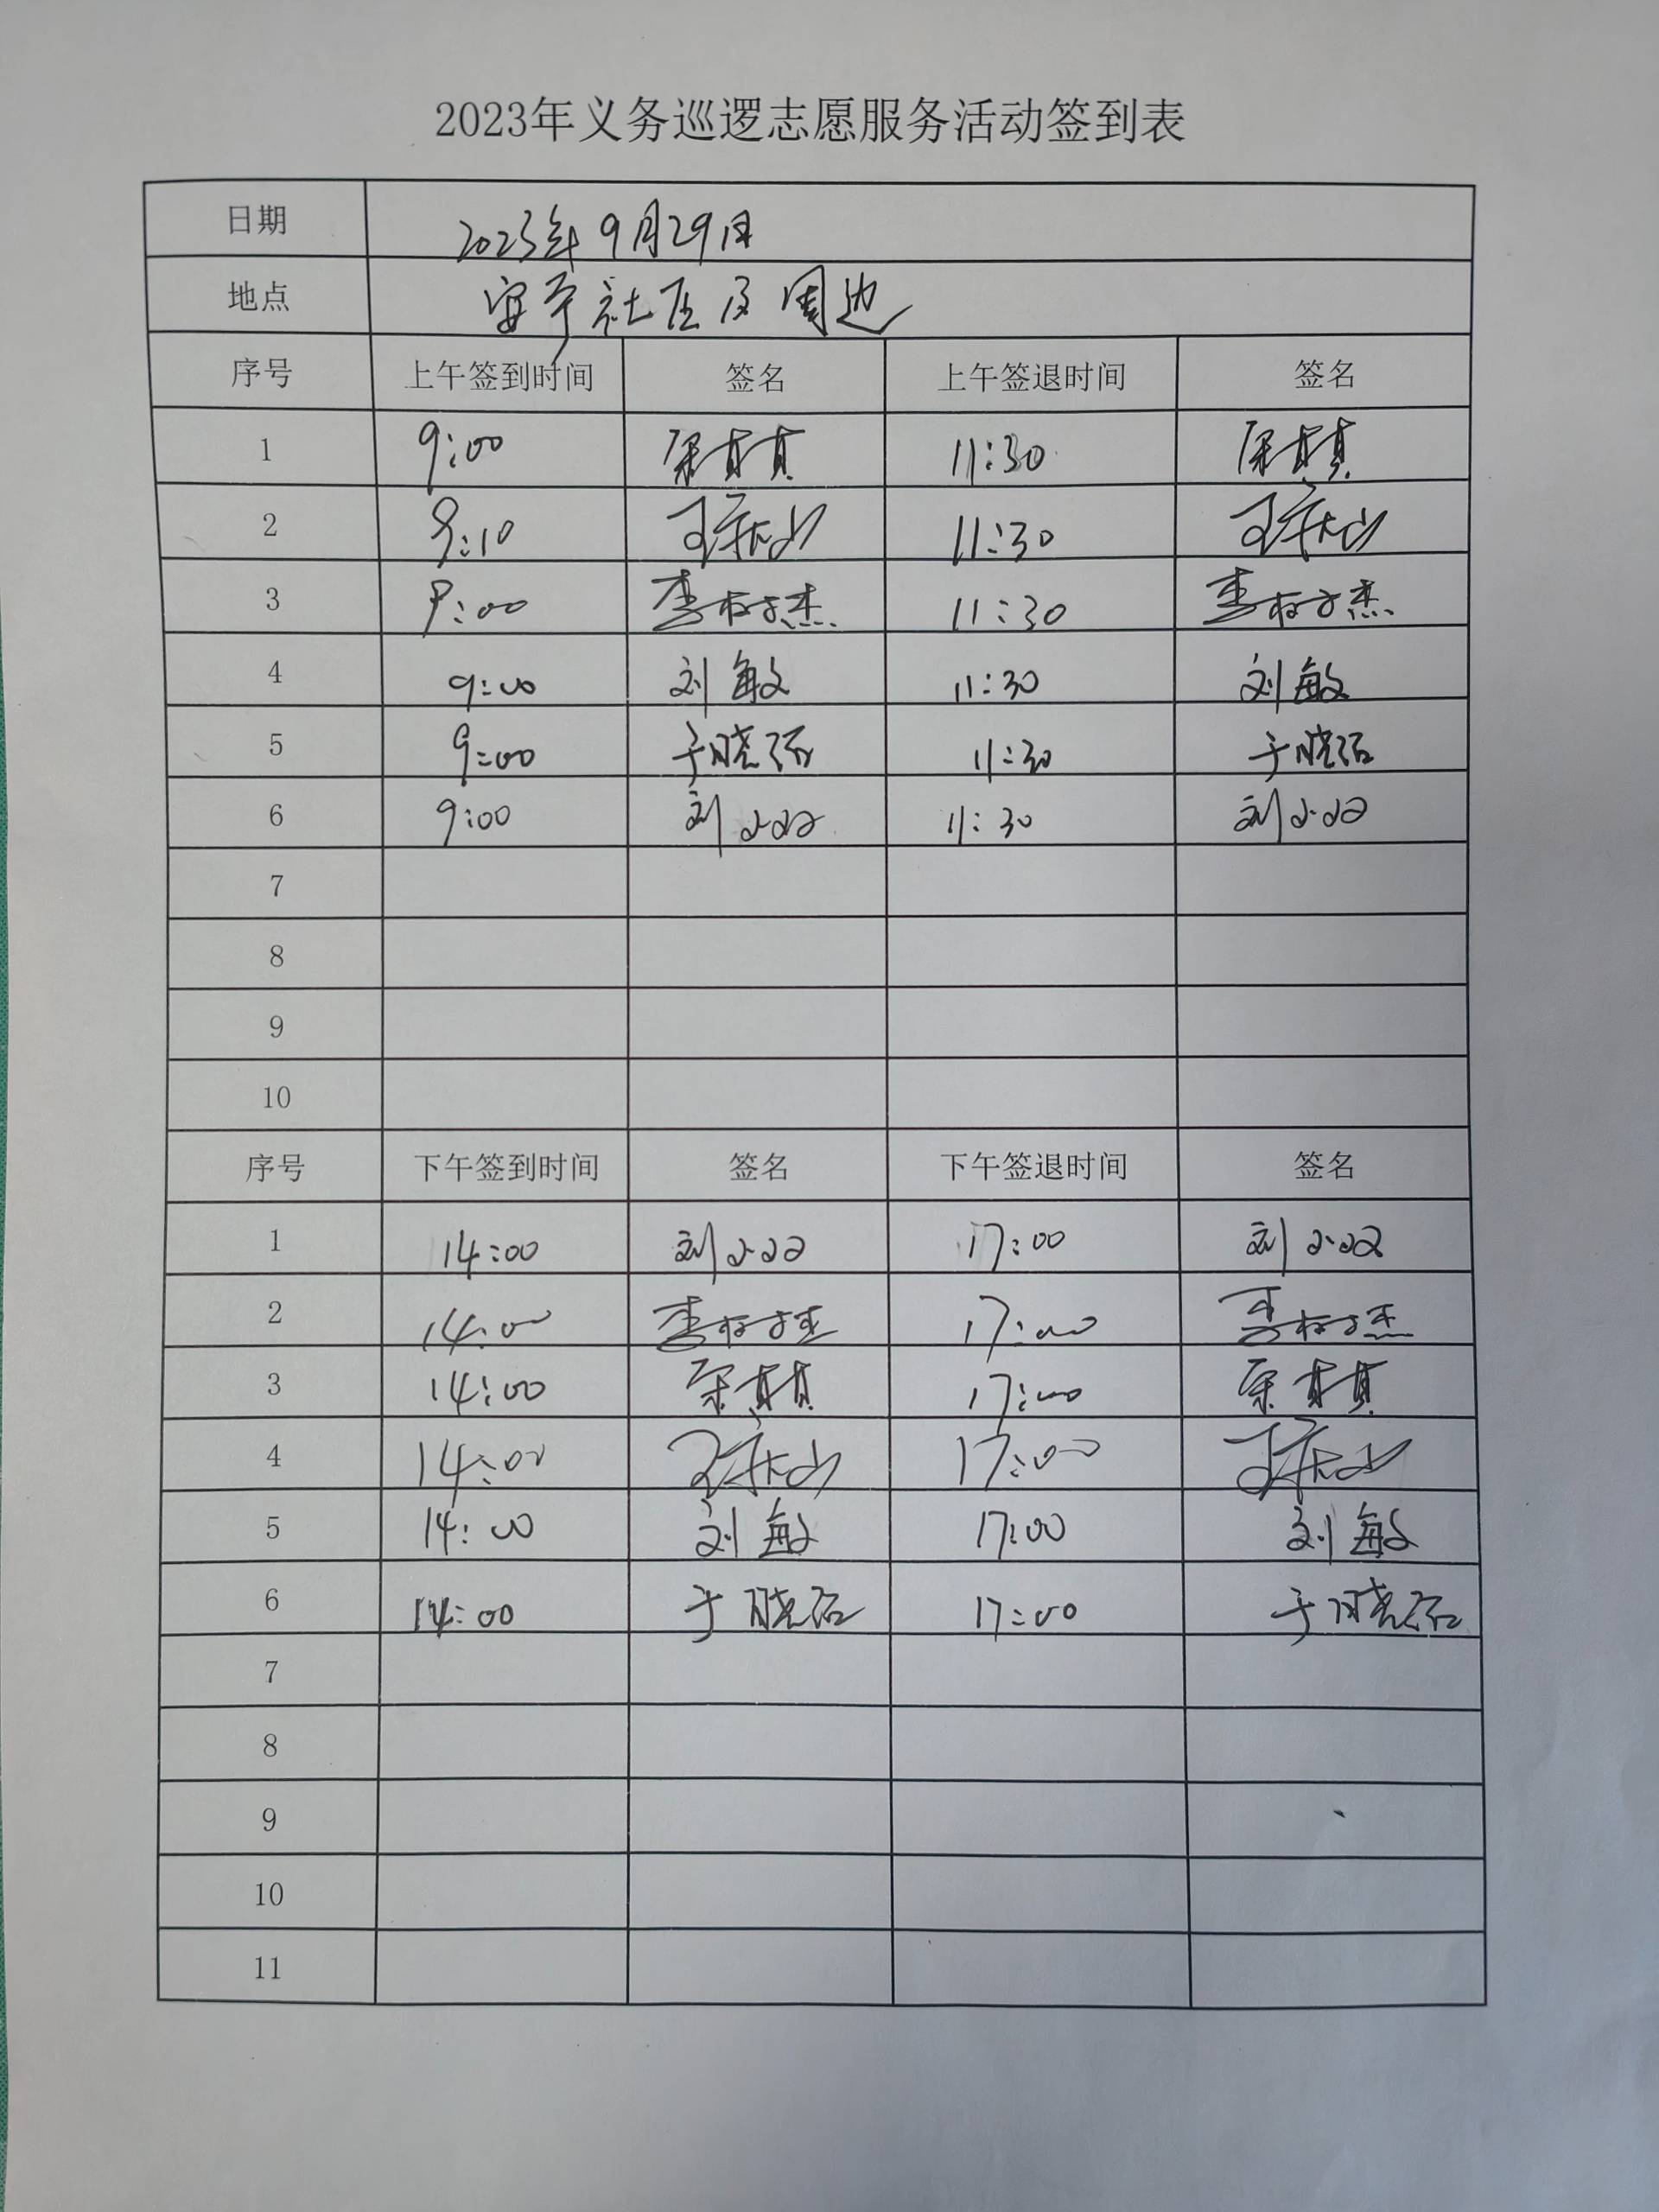 2023年义务巡逻志愿服务活动签到表
日期 2023年9月29日
地点 安亭社区及周边
序号 上午签到时间 签名 上午签退时间 签名
1 9:00 11:30
2 9:10 11:30
3 9:00 李 杰 11:30 李 杰
4 9:00 刘敏 11:30 刘敏
5 9:00 于晓 11:30 于晓
6 9:00 刘小 11:30 刘小
7
8
9
10
序号 下午签到时间 签名 下午签退时间 签名
1 14:00 刘小 17:00 刘小
2 14:00 李 杰 17:00 李 杰
3 14:00 17:00
4 14:00 17:00
5 14:00 刘敏 17:00 刘敏
6 14:00 于晓 17:00 于晓
7
8
9
10
11